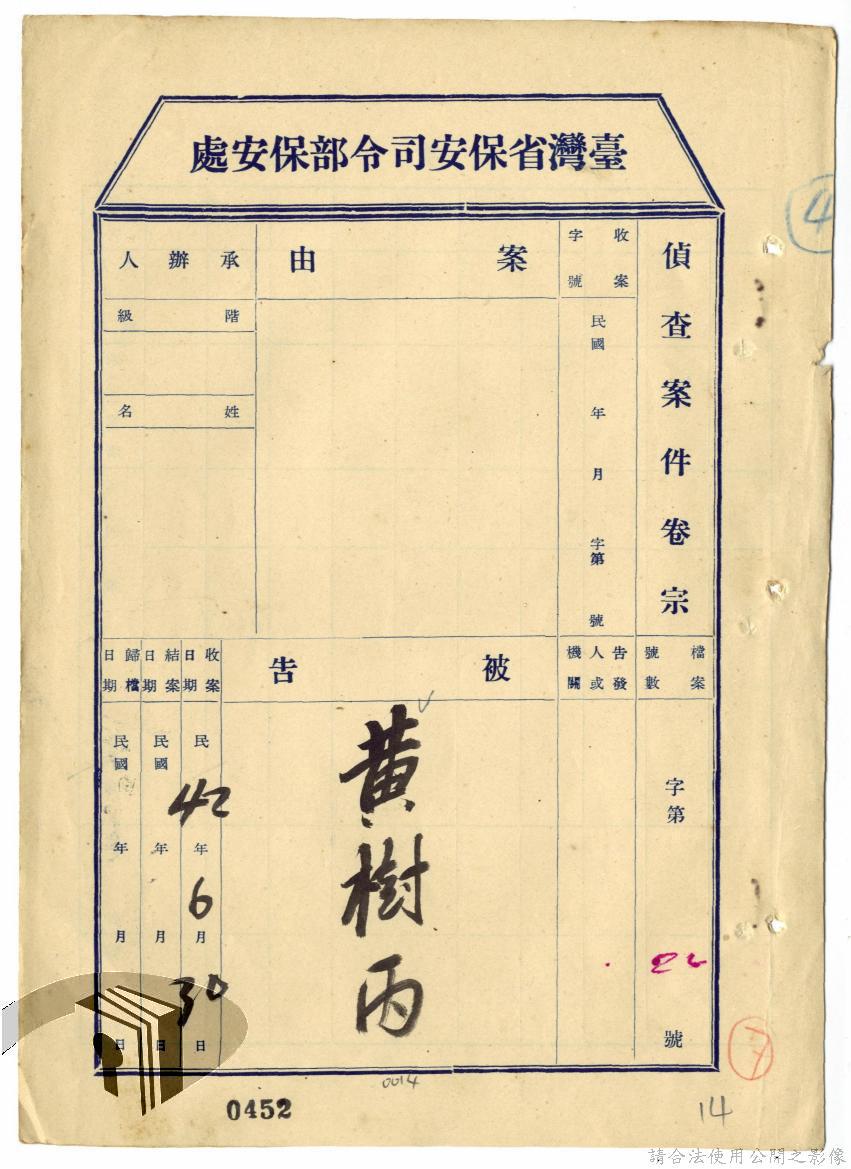 臺灣省保安司令部保安處
偵查案件卷宗
檔案號數
字第
22
號
收案字號
民國 年 月 字第 號
告發人或機關
案由
被告
黃樹丙
承辦人
階級
姓名
收案日期
民 42 年 6 月 30 日
結案日期
民國 年 月 日
歸檔日期
民國 年 月 日
4
7
0014
0452
14
請合法使用公開之影像